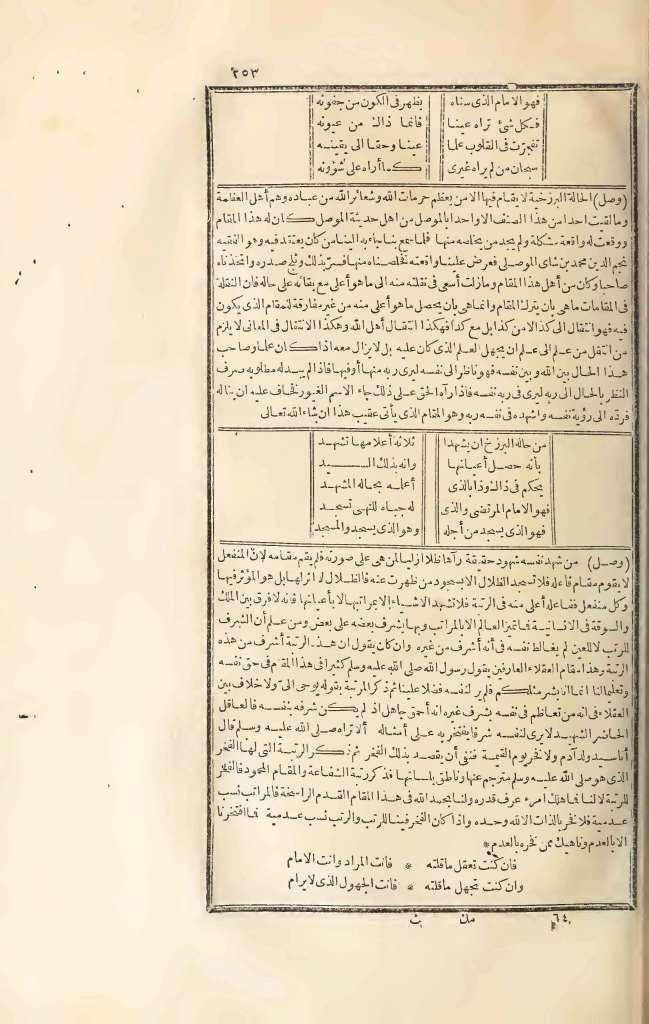 ٢٥٣
فهو الامام الذى سناه يظهر فى الكون من جفونه
فكل شئ تراه عينا فانما ذاك من عيونه
تفجرت فى القلوب علما عينا وحقا الى يقينه
سبحان من لم يراه غيرى كما أراه على شؤونه
(وصل) الحالة البرزخية لا يقام فيها الا من يعظم حرمات الله وشعائر الله من عباده وهم أهل العظمة
وما لقيت احدا من هذا الصنف الا واحدا بالموصل من اهل حديثة الموصل كان له هذا المقام
ووقعت له واقعة مشكلة ولم يجد من يخلصه منها فلما سمع بنا جاء به الينا من كان يعتقد فيه وهو الفقيه
نجم الدين محمد بن شاى الموصلى فعرض علينا واقعته فخلصناه منها فسر بذلك وثلج صدره واتخذناه
صاحبا وكان من أهل هذا المقام وما زلت أسعى فى نقلته منه الى ما هو أعلى مع بقائه على حاله فان النقلة
فى المقامات ما هى بان يترك المقام وانما هى بان يحصل ما هو أعلى منه من غير مفارقة للمقام الذى يكون
فيه فهو انتقال الى كذا لا من كذا بل مع كذا فهكذا انتقال أهل الله وهكذا الانتقال فى المعانى لا يلزم
من انتقل من علم الى علم ان يجهل العلم الذى كان عليه بل لا يزال معه اذا كان علما وصاحب
هذا الحال بين الله وبين نفسه فهو ناظر الى نفسه ليرى ربه منها أو فيها فاذا لم يبد له مطلوبه صرف
النظر بالحال الى ربه ليرى فى ربه نفسه فاذا رآه الحق على ذلك جاء الاسم الغيور فخاف عليه ان يناله
فرده الى رؤية نفسه واشهده فى نفسه ربه وهو المقام الذى يأتى عقيب هذا ان شاء الله تعالى
من حاله البرزخ ان يشهدا ثلاثة أعلامها تشهد
بأنه حصل أعيانها وانه بذلك السيد
يحكم فى ذاك وذا بالذى أعلمه بحاله المشهد
فهو الامام المرتضى والذى له جباه للنهى تسجد
فهو الذى يسجد من أجله وهو الذى يسجد والمسجد
(وصل) من شهد نفسه شهود حقيقة رآها ظلا ازليا لمن هى على صورته فلم يقم مقامه لان المنفعل
لا يقوم مقام فاعله فلا تسجد الظلال الا بسجود من ظهرت عنه فالظلال لا اثر لها بل هو المؤثر فيها
وكل منفعل ففاعله أعلى منه فى الرتبة فلا تشهد الاشياء الا بمراتبها لا بأعيانها فانه لا فرق بين الملك
والسوقة فى الانسانية فما تميز العالم الا بالمراتب وبها يشرف بعضه على بعض ومن علم أن الشرف
للرتب لا للعين لم يغالط نفسه فى أنه أشرف من غيره وان كان يقول ان هذه الرتبة أشرف من هذه
الرتبة وهذا مقام العقلاء العارفين يقول رسول الله صلى الله عليه وسلم كثيرا فى هذا المقام فى حق نفسه
وتعليما لنا انما انا بشر مثلكم فلم ير لنفسه فضلا علينا ثم ذكر المرتبة بقوله يوحى الى ولا خلاف بين
العقلاء فى انه من تعاظم فى نفسه بشرف غيره انه أحمق جاهل اذ لم يكن شرفه بنفسه فالعاقل
الحاضر الشهيد لا يرى لنفسه شرفا يفتخر به على أمثاله ألا تراه صلى الله عليه وسلم قال
أنا سيد ولد آدم ولا فخر يوم القيمة فنفى أن يقصد بذلك الفخر ثم ذكر الرتبة التى لها الفخر
الذى هو صلى الله عليه وسلم مترجم عنها وناطق بلسانها فذكر رتبة الشفاعة والمقام المحمود فالفخر
للرتبة لا لنا فما هلك امرء عرف قدره ولنا بحمد الله فى هذا المقام القدم الراسخة فالمراتب نسب
عدمية فلا فخر بالذات الا لله وحده واذا كان الفخر فينا للرتب والرتب نسب عدمية فما افتخرنا
الا بالعدم وناهيك ممن فخره بالعدم *
فان كنت تعقل ما قلته * فانت المراد وانت الامام
وان كنت تجهل ما قلته * فانت الجهول الذى لا يرام
٦٤ مك ث